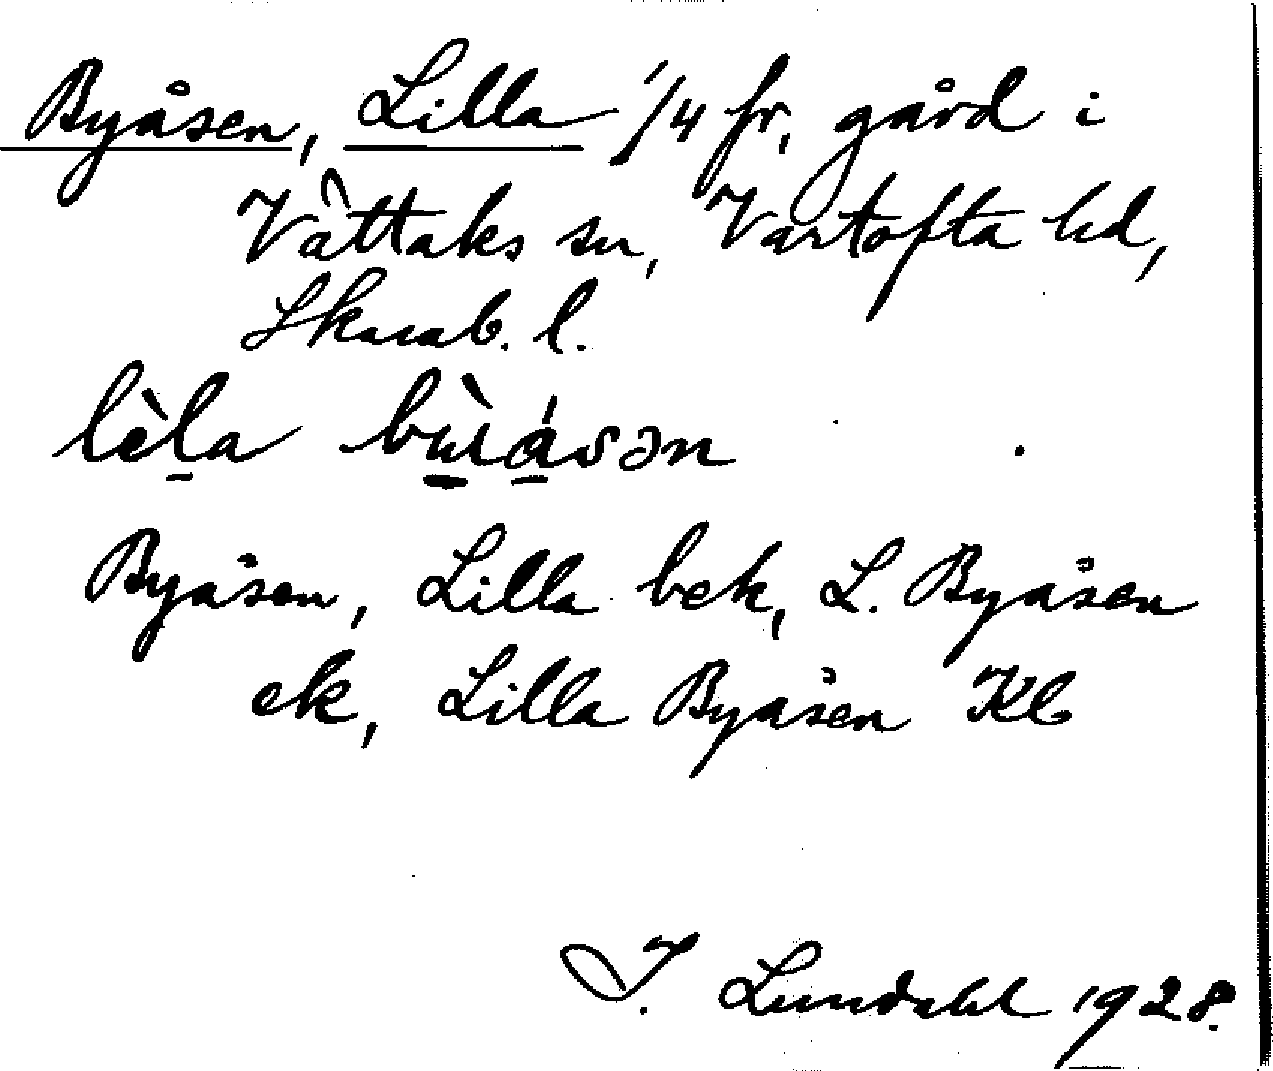 Byåsen, Lilla 1/4 fr. gård i
Våttaks sn, Vartofta hd,
Skarab. l.
lèla bùɹåsən
Byåsen, Lilla bek, L. Byåsen
ek, Lilla Byåsen Kl
I. Lundahl 1928.